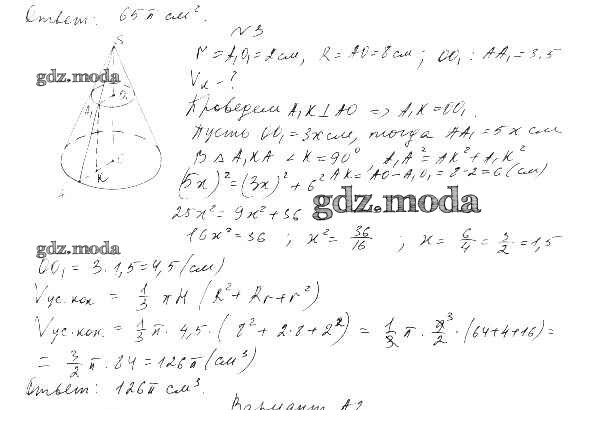 Ответ: 65π см².
N3
r = A₁O₁ = 2см, R = AO = 8см; OO₁ : AA₁ = 3:5
Vк - ?
Проведем A₁K⊥AO => A₁K = OO₁.
Пусть OO₁ = 3x см, тогда AA₁ = 5x см
В Δ A₁KA ∠K = 90° A₁A² = AK² + A₁K²
AK = AO - A₁O₁ = 8-2 = 6 (см)
(5x)² = (3x)² + 6²
25x² = 9x² + 36
16x² = 36 ; x² = 36/16 ; x = 6/4 = 3/2 = 1,5
OO₁ = 3·1,5 = 4,5 (см)
Vус.кон. = 1/3 πH (R² + Rr + r²)
Vус.кон. = 1/3 π · 4,5 · (8² + 2·8 + 2²) = 1/3 π · 9³/2 · (64+4+16) =
= 3/2 π · 84 = 126π (см³)
Ответ: 126π см³.
Вариант А2
S
O₁
A₁
O
K
A
gdz.moda
gdz.moda
gdz.moda